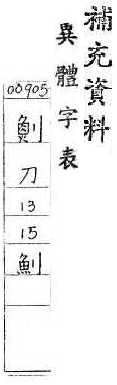 補充資料
異體字表
00905
刀
13
15
魝